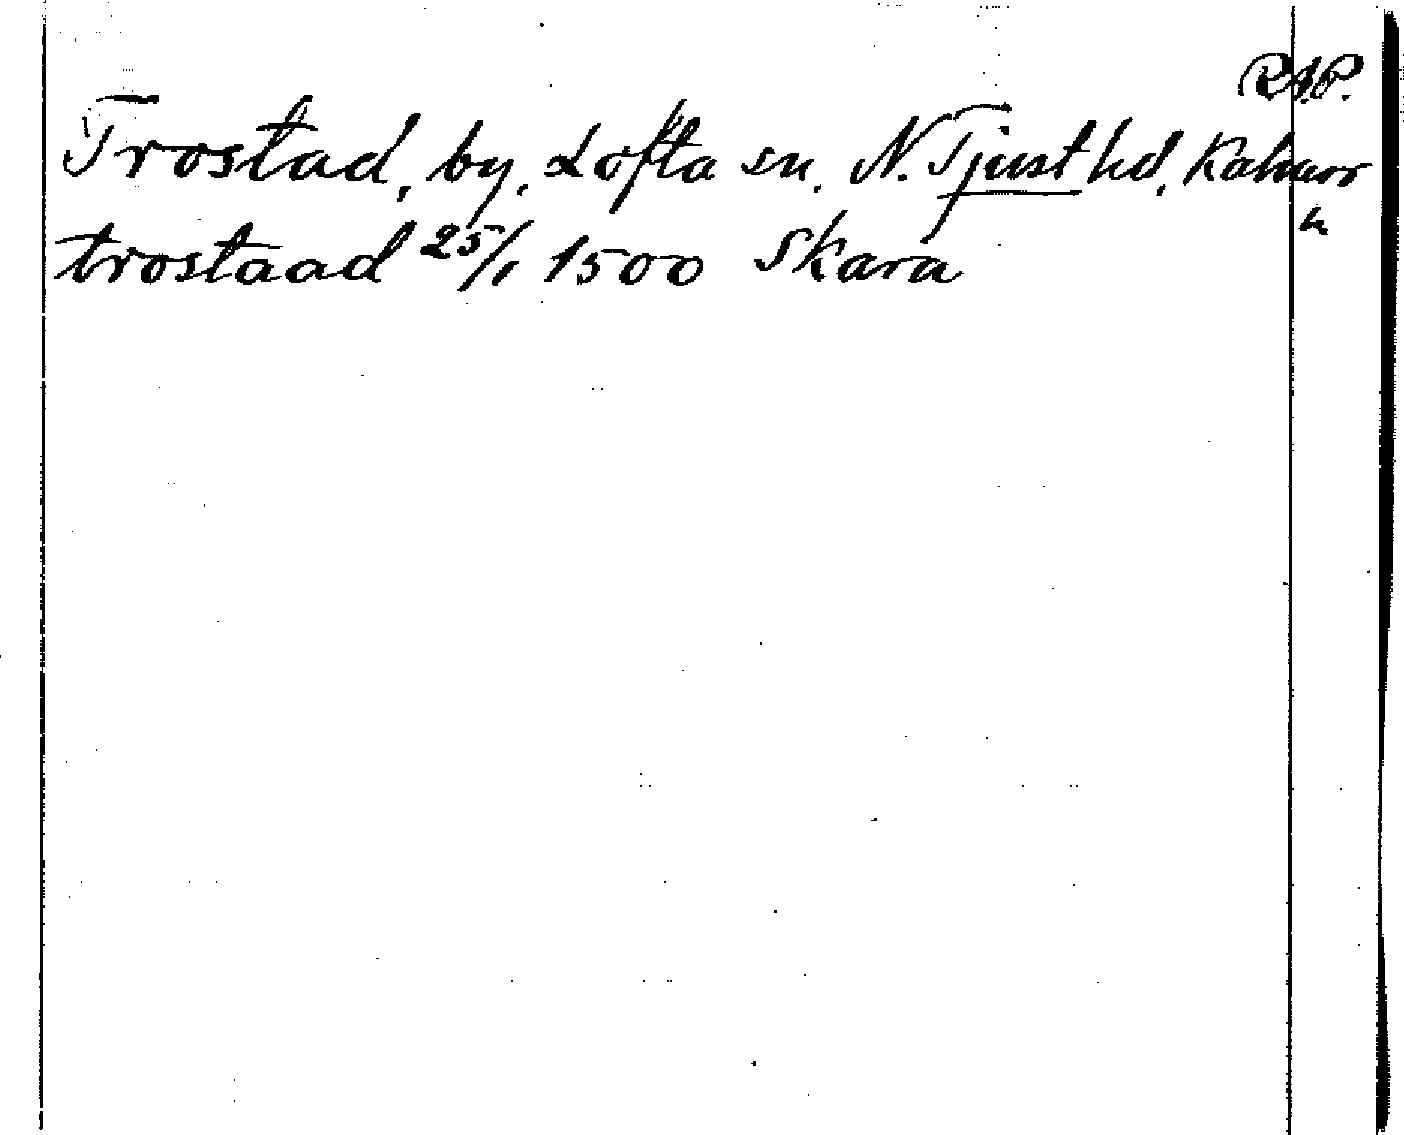 R.A.P.
Trostad, by, Lofta sn, N. Tjust hd, Kalmar
l.
trostaad 25/1 1500 Skara